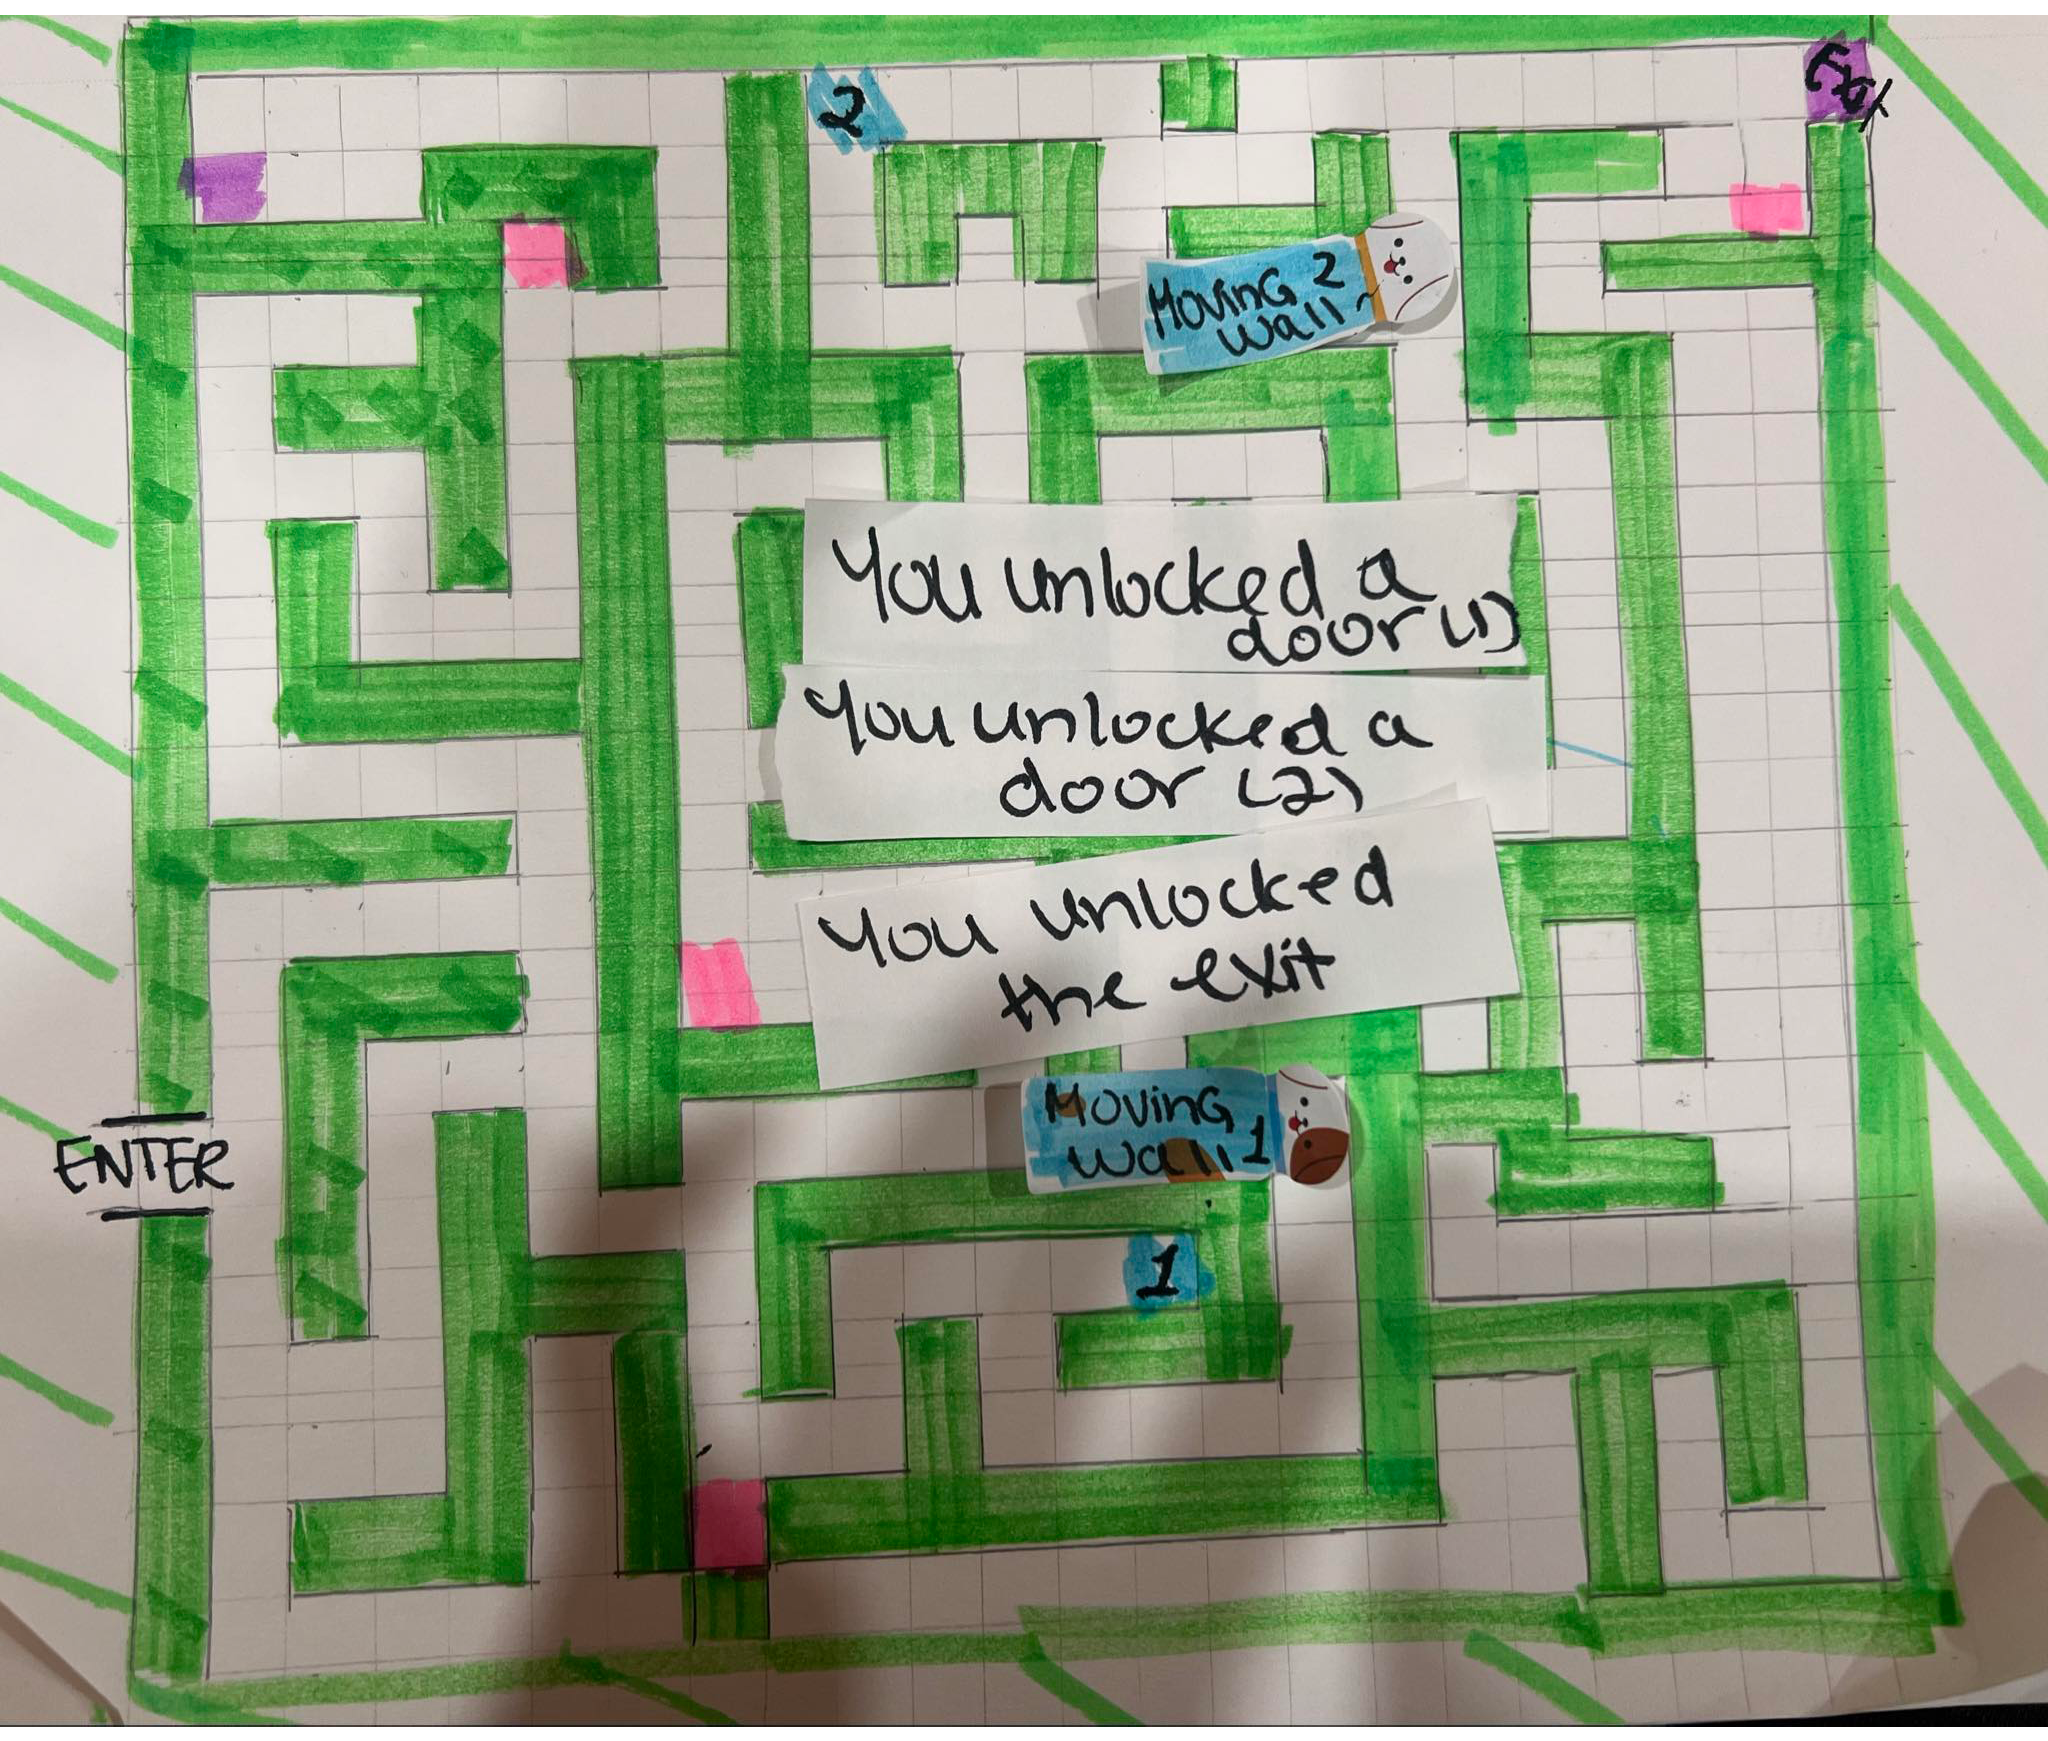 Exit
2
MOVING 2
Wall
You unlocked a
door (1)
You unlocked a
door (2)
You unlocked
the exit
MOVING
Wall 1
ENTER
1